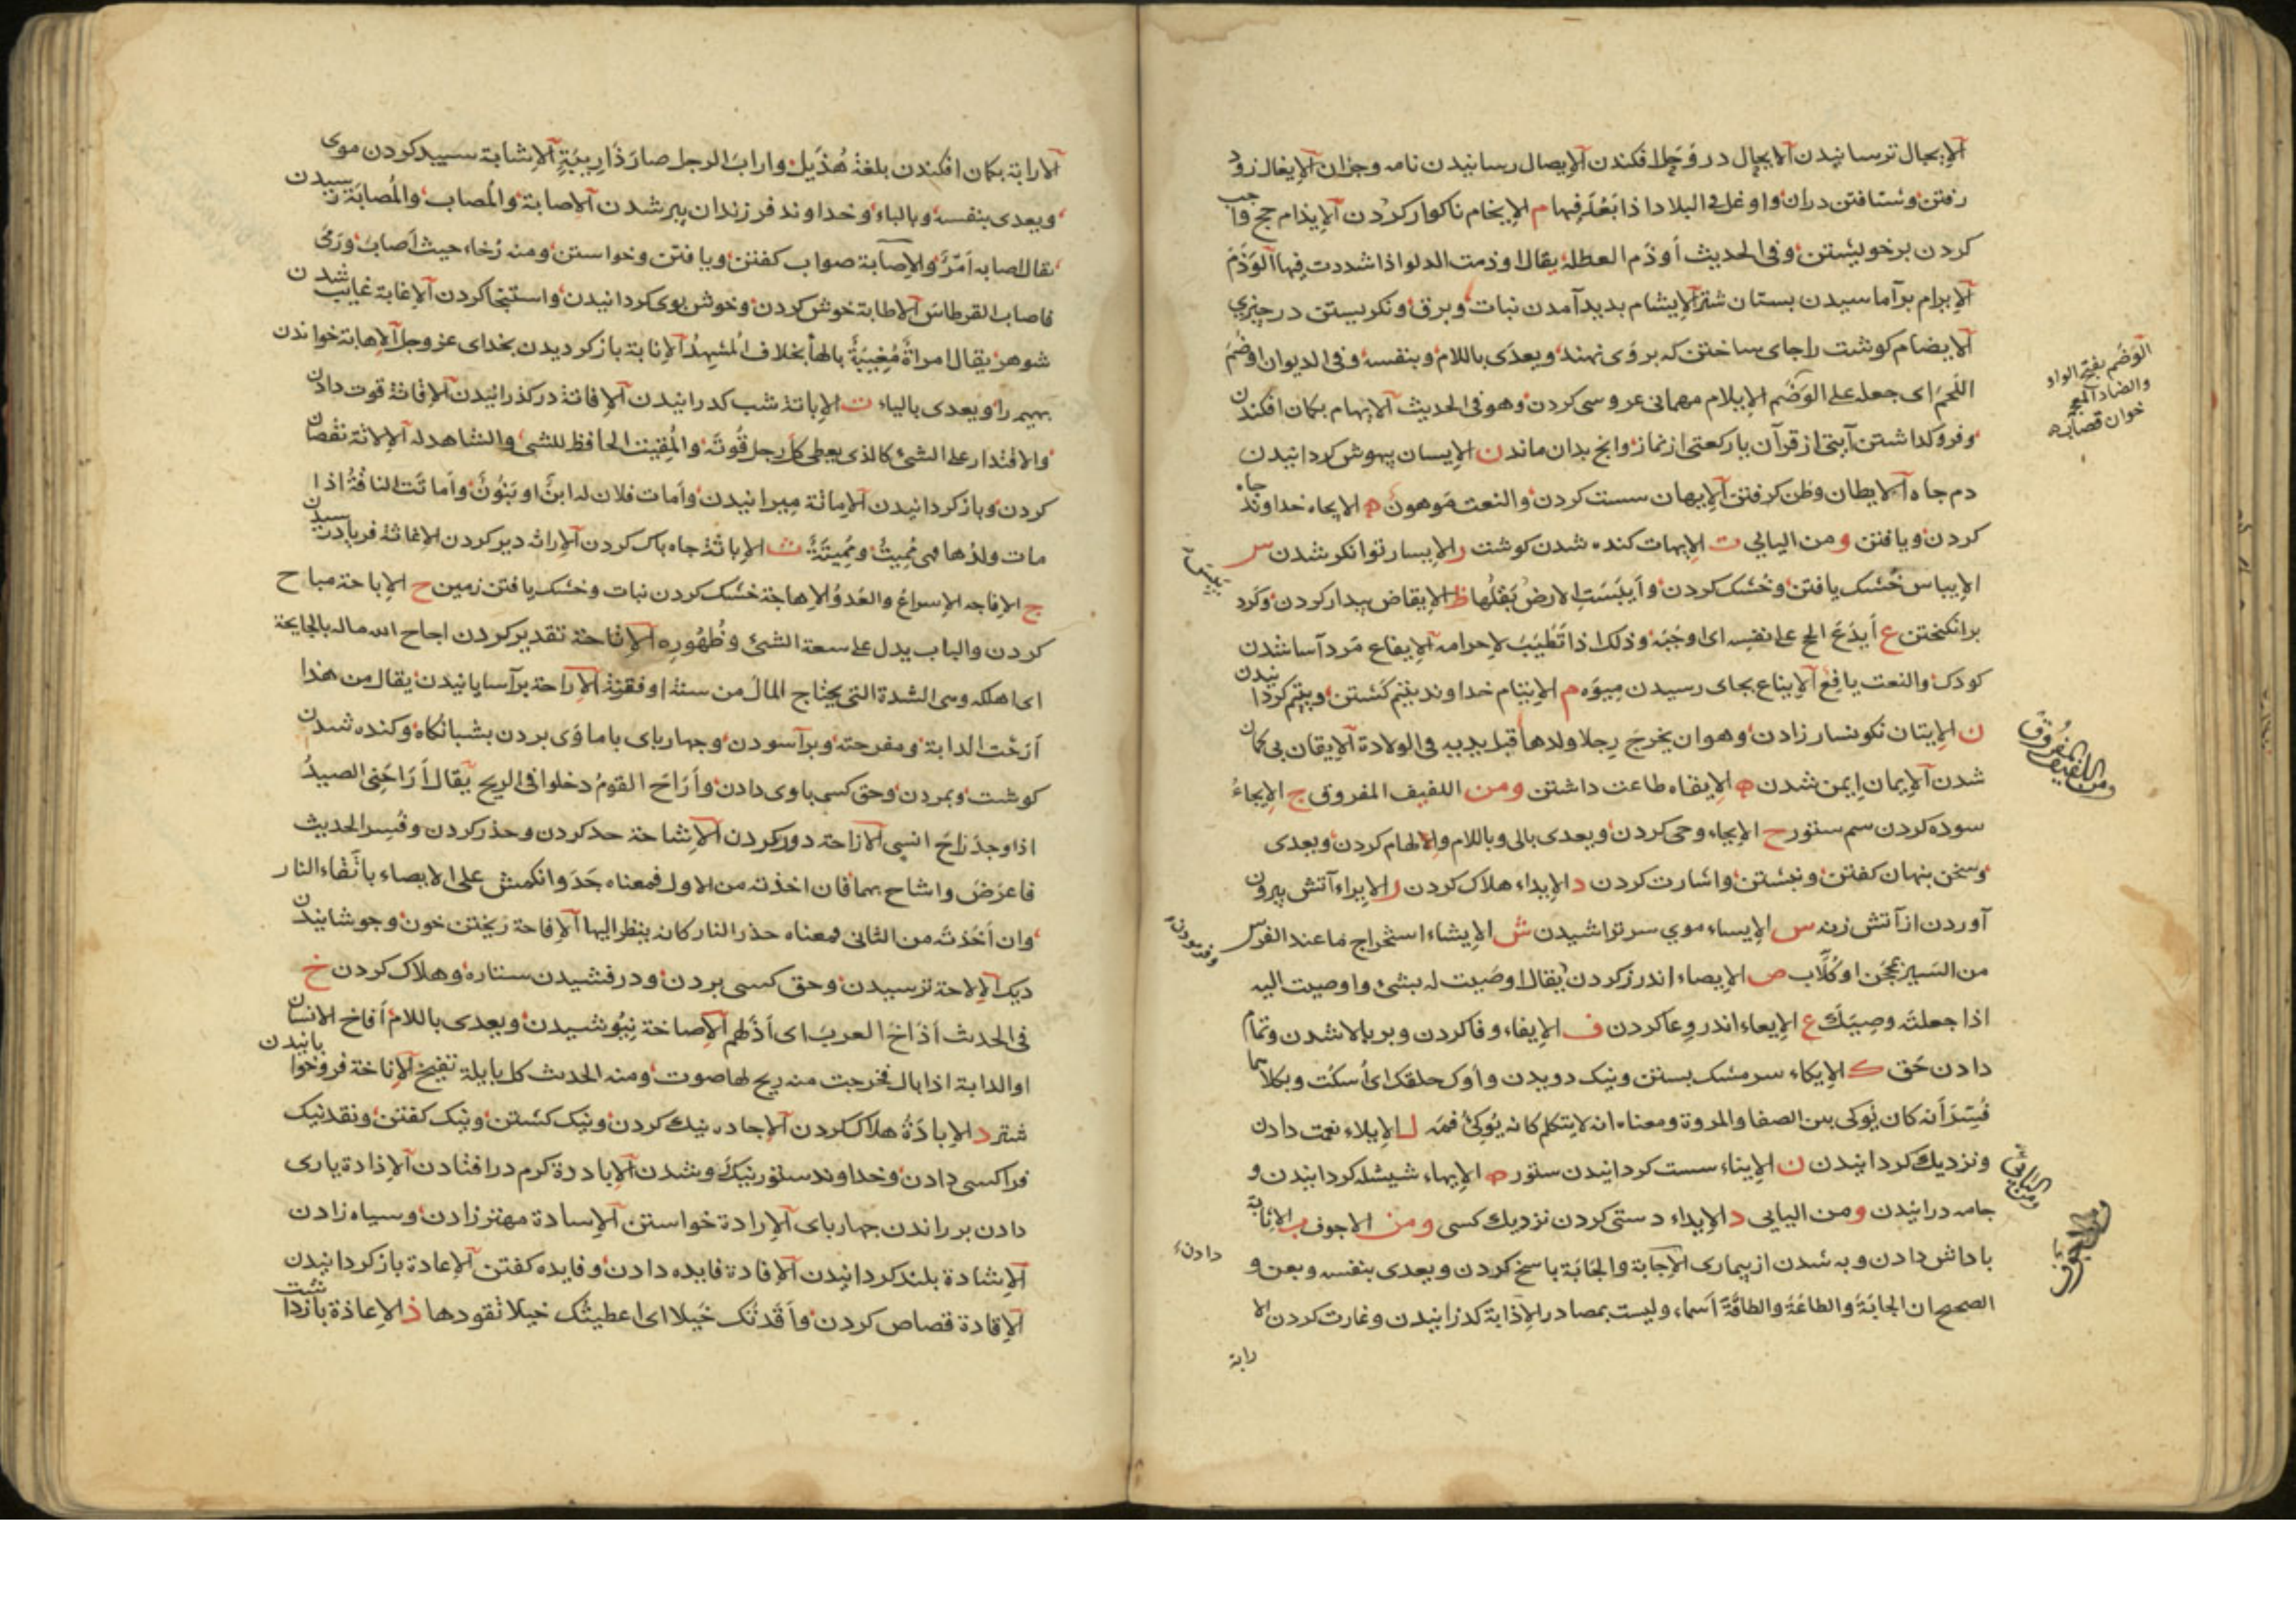 الإيجال ترسانيدن الإيحال در وَحَل افكندن الإيصال رسانيدن نامه وجزان الإيغال زود
رفتن وشتافتن دران واوغل فى البلاد اذا بَعُدَ فيها م الإيخام ناكوار كردن الإيذام حج واجب
كردن برخويشتن وفى الحديث أوذَم العطلة يقال اوذمت الدلو اذا شددت فيها الوَذَمَ
الإيرام برآماسيدن بستان شتر الإيشام بديد آمدن نبات وبرق ونكريستن در چيزي
الايضام كوشت راجاى ساختن كه بروى نهند ويعدى باللام وبنفسه وفى الديوان اوضَمَ
اللّحمَ اى جعله على الوَضَم الإيلام مهمانى عروسى كردن وهو فى الحديث الايهام بكمان افكندن
وفروكذاشتن آيتى از قرآن يا ركعتى از نماز وانچ بدان ماند ن الإيسان بيهوش كردانيدن
دم چاه الايطان وطن كرفتن الإيهان سست كردن والنعت مَوهون ه الايجاه خداوند جاه
كردن ويافتن ومن اليايي ت الإيهات كنده شدن كوشت ر الإيسار توانكر شدن س
الإيباس خشك يافتن وخشك كردن وأيبَسَتِ الارضُ بَقلُها ظ الإيقاض بيدار كردن وكرد
برانكيختن ع أيدَعَ الحج على نفسه اى اوجَبَه وذلك اذا تَطَيَّبَ لإحرامه الإيفاع مرد آسا شدن
كودك والنعت يافع الإيناع بجاى رسيدن ميوه م الإيتام خداوند يتيم كشتن ويتيم كردانيدن
ن الإيتان نكونسار زادن وهو ان يخرج رجلا ولدها قبل يديه فى الولادة الإيقان بى كمان
شدن الإيمان ايمن شدن ه الإيقاه طاعت داشتن ومن اللفيف المفروق ج الإيجاءُ
سوده كردن سم ستور ح الإيحاء وحى كردن ويعدى بالى وباللام والالهام كردن ويعدى
وسخن پنهان كفتن ونبشتن واشارت كردن د الإيداء هلاك كردن ر الإيراء آتش بيرون
آوردن از آتش زنه س الإيساء موي سر تراشيدن ش الإيشاء استخراج ما عند الفرس
من السَير بمحجَن او كُلّاب ص الإيصاء اندرز كردن يقال اوصَيت له بشئ واوصيت اليه
اذا جعلته وصيَّك ع الإيعاء اندر وعا كردن ف الإيفاء وفا كردن وبر بالا شدن وتمام
دادن حَق ك الإيكاء سر مشك بستن ونيك دويدن وأوك حلقك اى أسكت وبكلاهما
فُسِّرَ أنه كان يُوكى بين الصفا والمروة ومعناه انه لا يتكلم كانه يُوكِئُ فمَه ل الإيلاء نعمت دادن
ونزديك كردانيدن ن الإيناء سست كردانيدن ستور ه الإيهاء شيشله كردانيدن و
جامه درانيدن ومن اليايي د الإيداء دستى كردن نزديك كسى ومن الاجوف ب الاثابة
باداش دادن وبه شدن از بيمارى الإجابة والجابَة باسخ كردن ويعدى بنفسه وبعن و
الصحيح ان الجابَةَ والطاعَةَ والطاقَةَ اَسماء وليست بمصادر الإذابة كدزانيدن وغارت كردن الا
رابة
الوَضَم بفتح الواو
والضاد المعجمة
خوان قصاب
ومن اللفيف المفروق
دادن
الارابة بكمان افكندن بلغة هُذَيل واراب الرجل صار ذَا رِيبَةٍ الإشابة سپيد كردن موى
ويعدى بنفسه وبالباء وخداوند فرزندان پير شدن الاصابة والمُصاب والمُصابَة رسيدن
يقال اصابه اَمرٌ والإصابة صواب كفتن ويافتن وخواستن ومنه رُخاء حيث اَصابَ ورَمىٰ
فاصاب القرطاسَ الاطابة خوش كردن وخوش بوى كردانيدن واستنجا كردن الإغابة غايب شدن
شوهر يقال امراةٌ مُغيبَةٌ بالهاء بخلاف المُشهِدُ الإنابة باز كرديدن بخداى عزوجل الإهابة خواندن
بهيمه را ويعدى بالياء ت الإباتة شب كدرانيدن الافاتة در كذرانيدن الإقاتة قوت دادن
والاقتدار على الشئ كالذى يعطى كلَّ رجل قُوتَه والمُقِيت الحافظ للشئ والشاهد له الإلاتة نقصان
كردن وباز كردانيدن الإماتة ميرانيدن وأمات فلان له ابنٌ او بَنُونٌ واَماتَت الناقةُ اذا
مات ولدها فهى مُمِيتٌ ومُمِيتَةٌ ث الإباثَة جاه پاك كردن الإراثه دير كردن الإغاثة فرياد رسيدن
ج الإفاجه الإسراعُ والعَدوُ الإهاجَة خشك كردن نبات وخشك يافتن زمين ح الإباحة مباح
كردن والباب يدل على سعة الشئ وظُهُورِه الإتاحة تقدير كردن اجاح الله ماله بالجايحة
اى اهلكه وهى الشدة التى يجتاج المال من سنة او فتنة الإراحة برآسايانيدن يقال من هذا
اَرَحْت الدابة ومفرحته وبرآسودن وچهارپاى با ماوى بردن بشبانكاه وكنده شدن
كوشت وبمردن وحق كسى باوى دادن واَرَاحَ القومُ دخلوا فى الريح يقال اَرَاحَنِى الصيدُ
اذا وجد رَاحَ انسى الازاحة دور كردن الإشاحة حد كردن وحذر كردن وفُسِر الحديث
فاعرضَ واشاح بهما فان اخذته من الاول فمعناه جَدَ وانكمش على الايصاء باتِّقاء النار
وان أخَذتَه من الثانى فمعناه حذر النار كانه ينظر اليها الإفاحة ريختن خون وجوشانيدن
ديك الإلاحة ترسيدن وحق كسى بردن ودرفشيدن ستاره وهلاك كردن خ
فى الحديث أذَاخَ العربَ اى أذلهم الإصاخة نيوشيدن ويعدى باللام أفاخ الانسان
او الدابة اذا بال فخرجت منه ريح لها صوت ومنه الحدث كل بايلة تفيخ الإناخة فروخوابانيدن
شتر د الإبادَةُ هلاك كردن الإجاده نيك كردن ونيك كشتن ونيك كفتن ونقد نيك
فرا كسى دادن وخداوند ستور نيك وشدن الإيادرة كرم در افتادن الإذادة يارى
دادن بر راندن چهارپاى الإرادة خواستن الإسادة مهتر زادن وسياه زادن
الإشادة بلند كردانيدن الإفادة فايده دادن وفايده كفتن الإعادة باز كردانيدن
الإقادة قصاص كردن واَقَدتُك خَيلا اى اعطيتُك خيلا تقودها ذ الإعاذة بازداشت